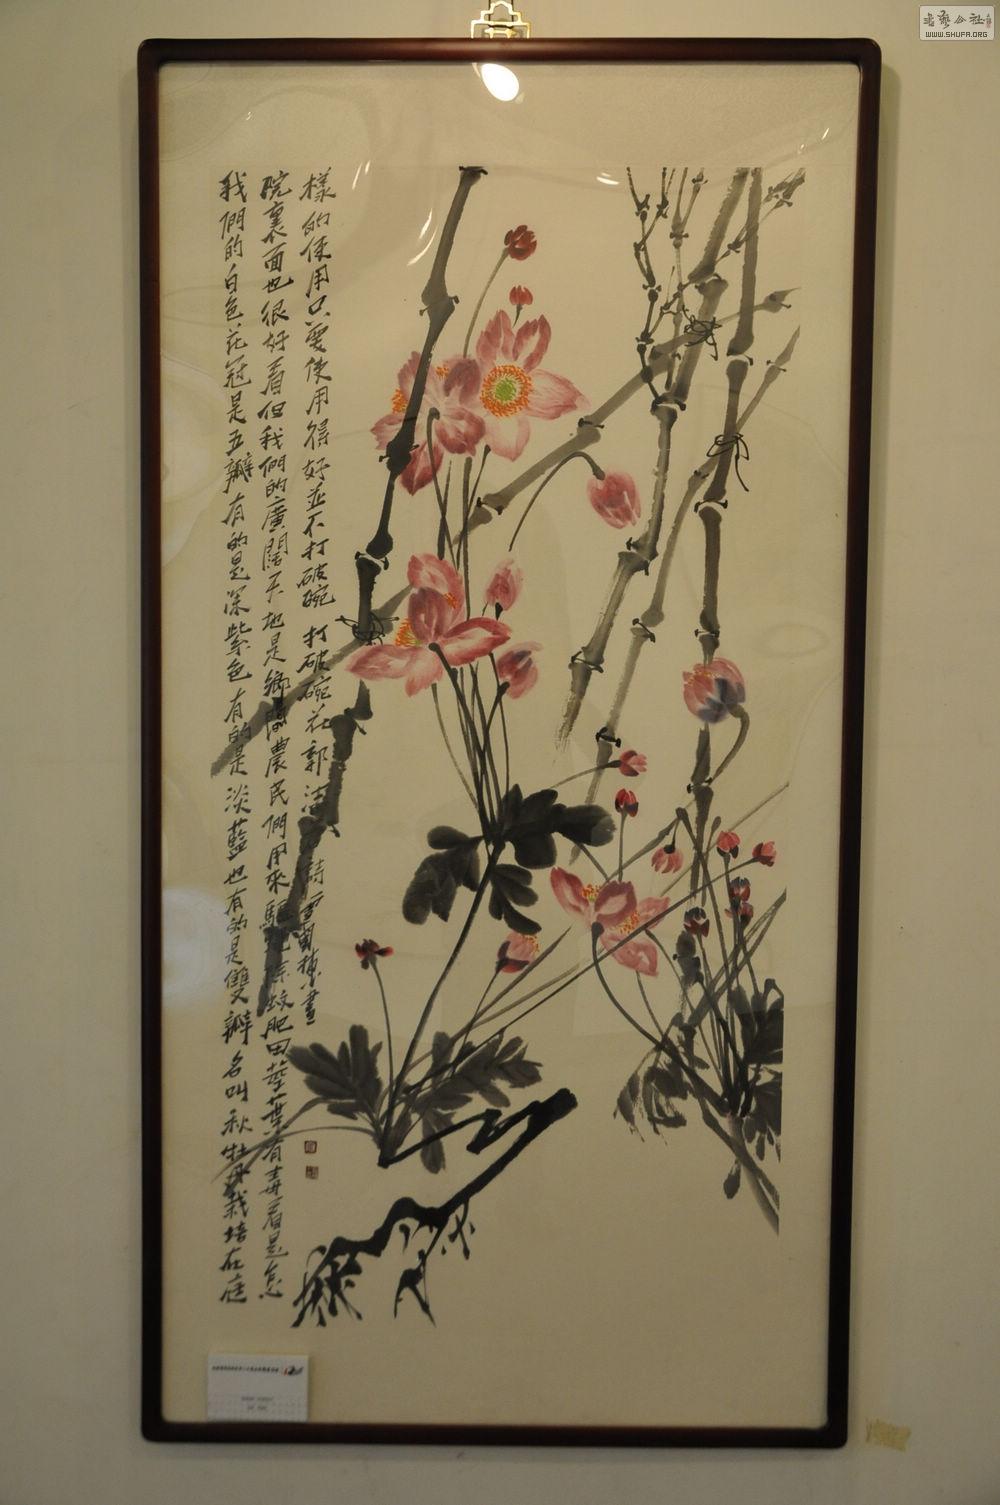 我們的白色花冠是五瓣有的是深紫色有的是淡藍也有的是雙瓣名叫秋牡丹栽培在庭
院裏面也很好看但我們的廣闊天地是鄉間農民們用來驅蛆除蚊肥田莖葉有毒看是怎
樣的使用只要使用得好並不打破碗 打破碗花 郭沫若詩 畫
书艺公社
WWW.SHUFA.ORG